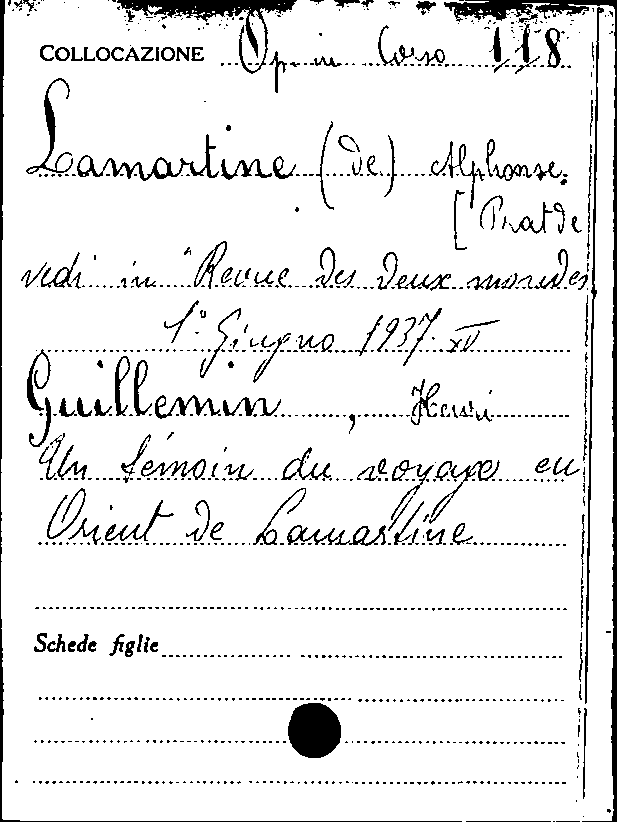 COLLOCAZIONE Op. in Corso 118
Lamartine (de) Alphonse.
[Prat de
vedi in "Revue des deux mondes
1° Giugno 1937. XV
Guillemin, Henri
Un témoin du voyage en
Orient de Lamartine
Schede figlie